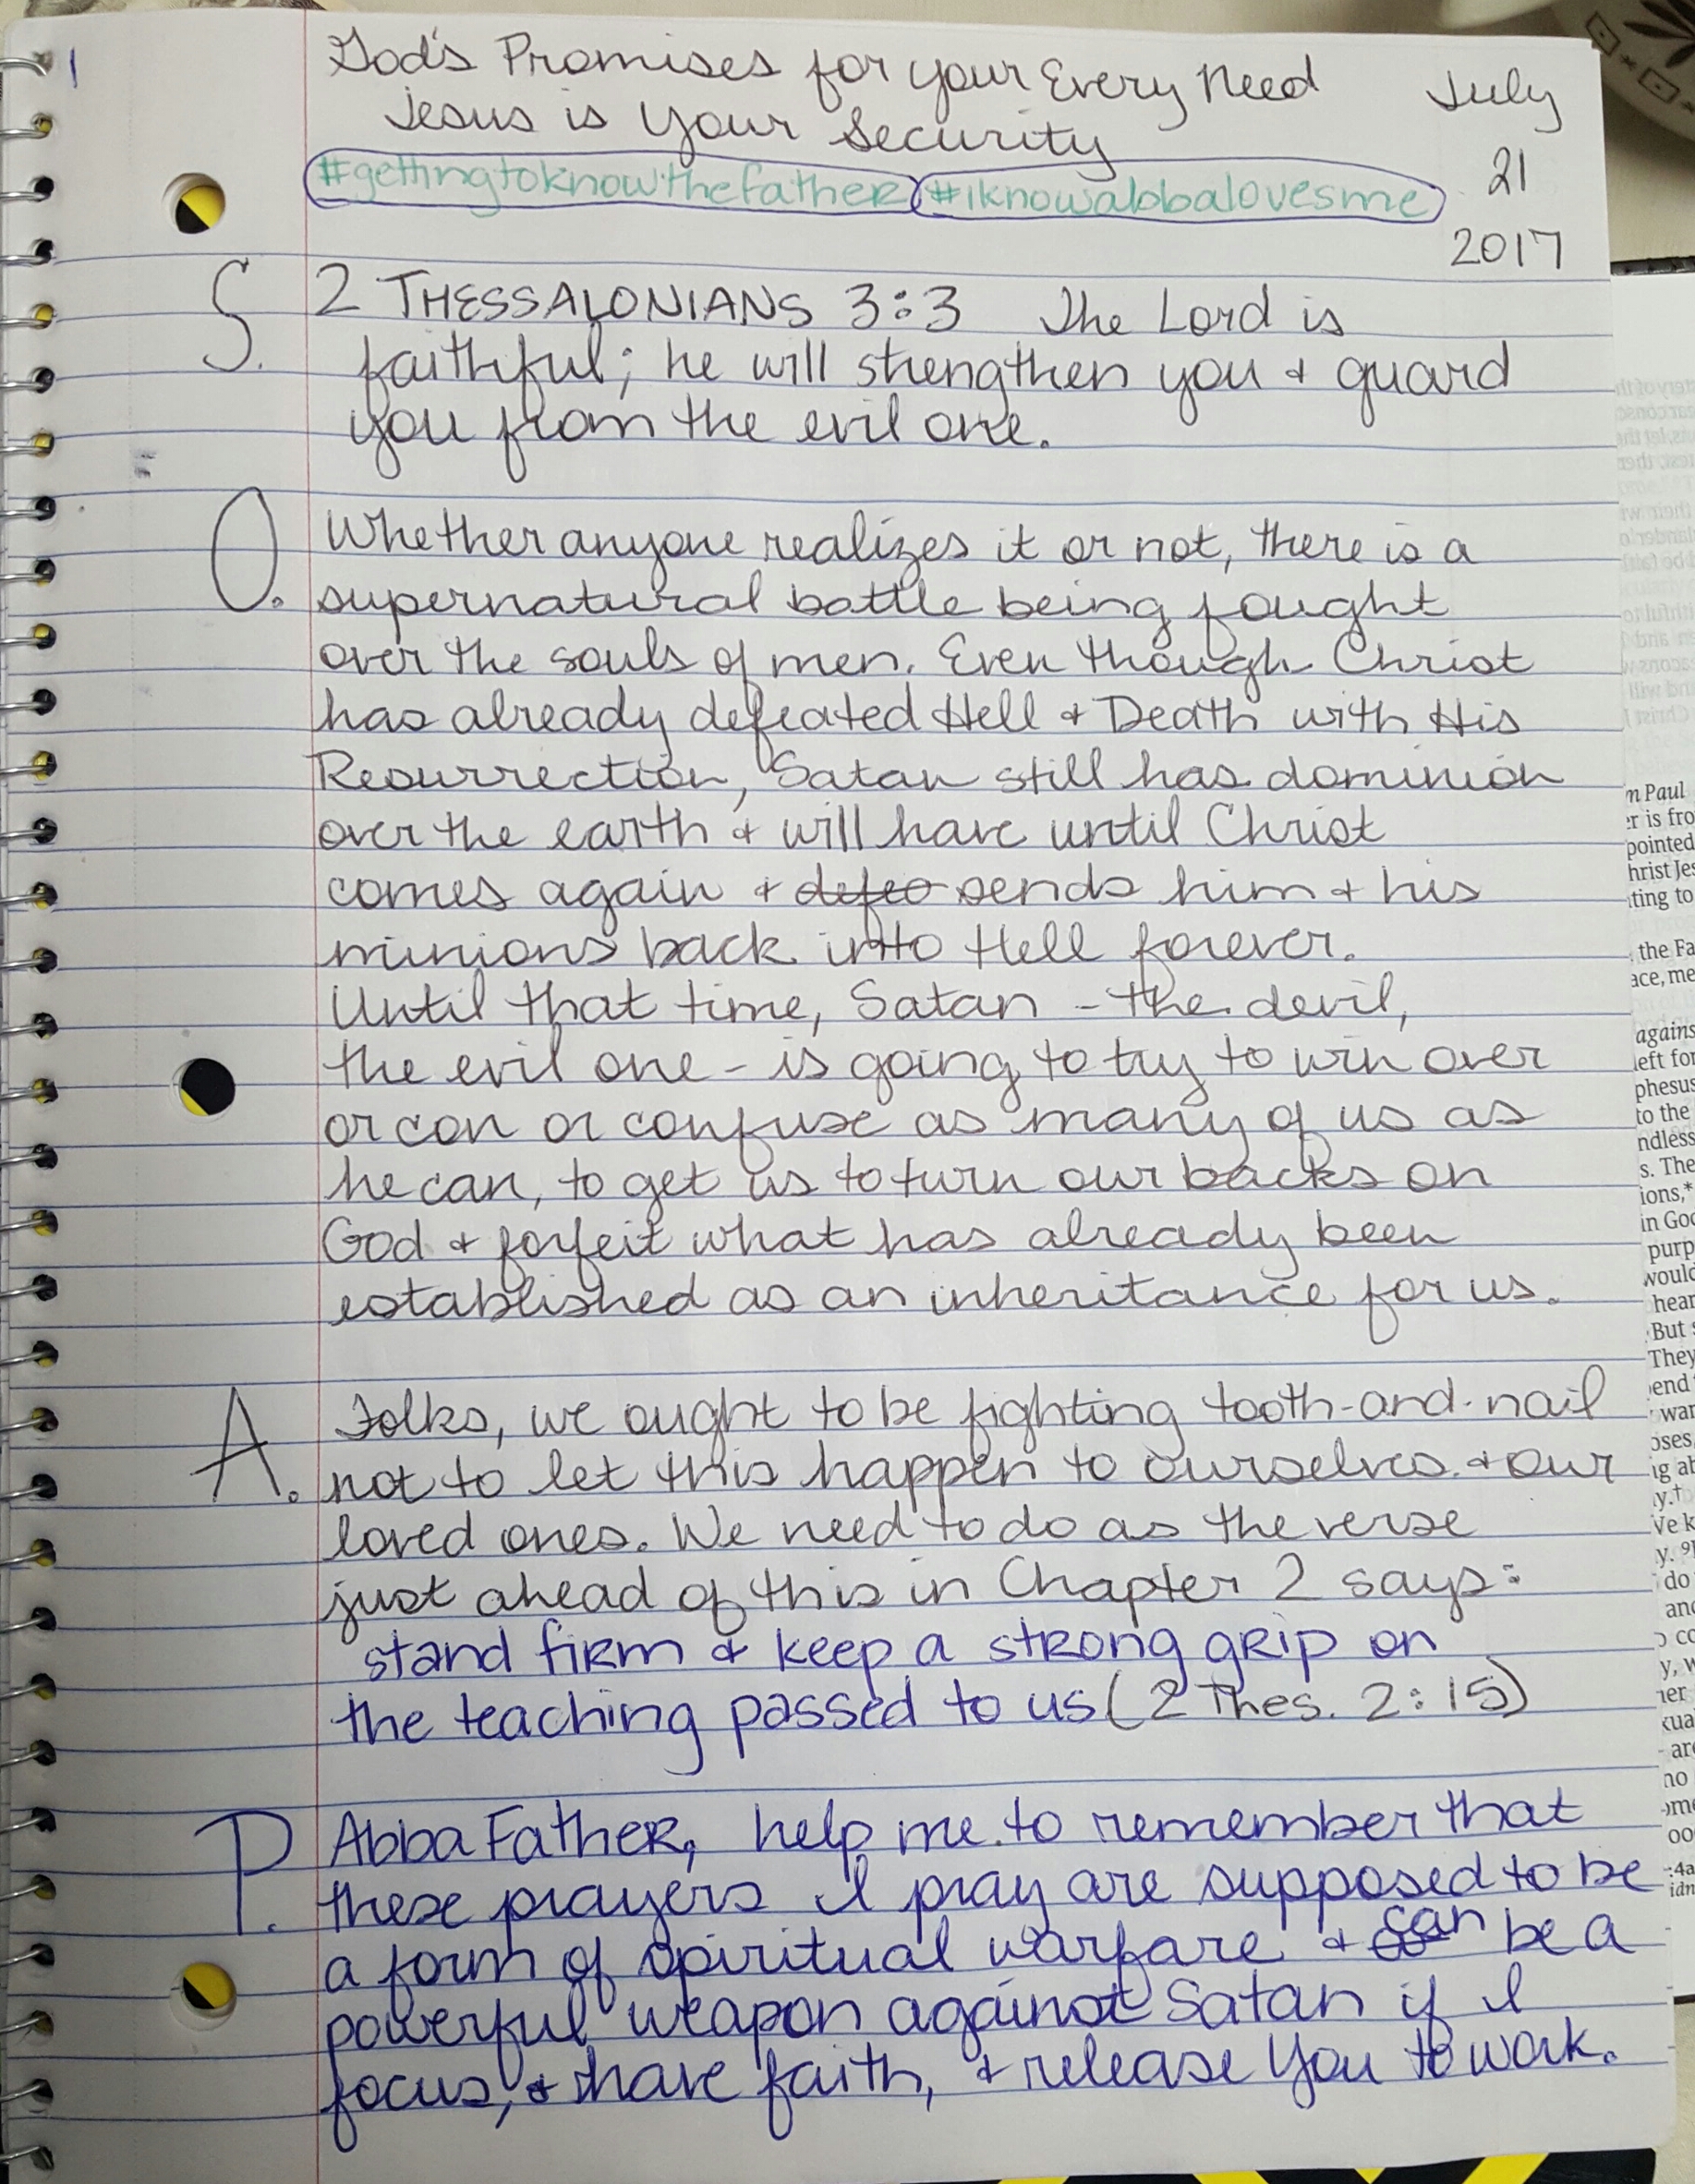 1
God's Promises for your Every Need
July
Jesus is Your Security
#gettingtoknowthefather #iknowabbalovesme
21
2017
S. 2 THESSALONIANS 3:3 The Lord is
faithful; he will strengthen you & guard
you from the evil one.
O. Whether anyone realizes it or not, there is a
supernatural battle being fought
over the souls of men. Even though Christ
has already defeated Hell & Death with His
Resurrection, Satan still has dominion
over the earth & will have until Christ
comes again & defeo sends him & his
minions back into Hell forever.
Until that time, Satan - the devil,
the evil one - is going to try to win over
or con or confuse as many of us as
he can, to get us to turn our backs on
God & forfeit what has already been
established as an inheritance for us.
A. Folks, we ought to be fighting tooth-and-nail
not to let this happen to ourselves & our
loved ones. We need to do as the verse
just ahead of this in Chapter 2 says:
stand firm & keep a strong grip on
the teaching passed to us (2 Thes. 2:15)
P. Abba Father, help me to remember that
these prayers I pray are supposed to be
a form of spiritual warfare & can be a
powerful weapon against Satan if I
focus, & have faith, & release You to work.
m Paul
er is fro
pointed
hrist Jes
ting to
the Fa
ace, me
agains
left for
phesus
to the
ndless
s. The
ions,*
in Goo
purp
would
hear
But s
They
end
war
oses,
ig ab
y.†
Ve k
do
and